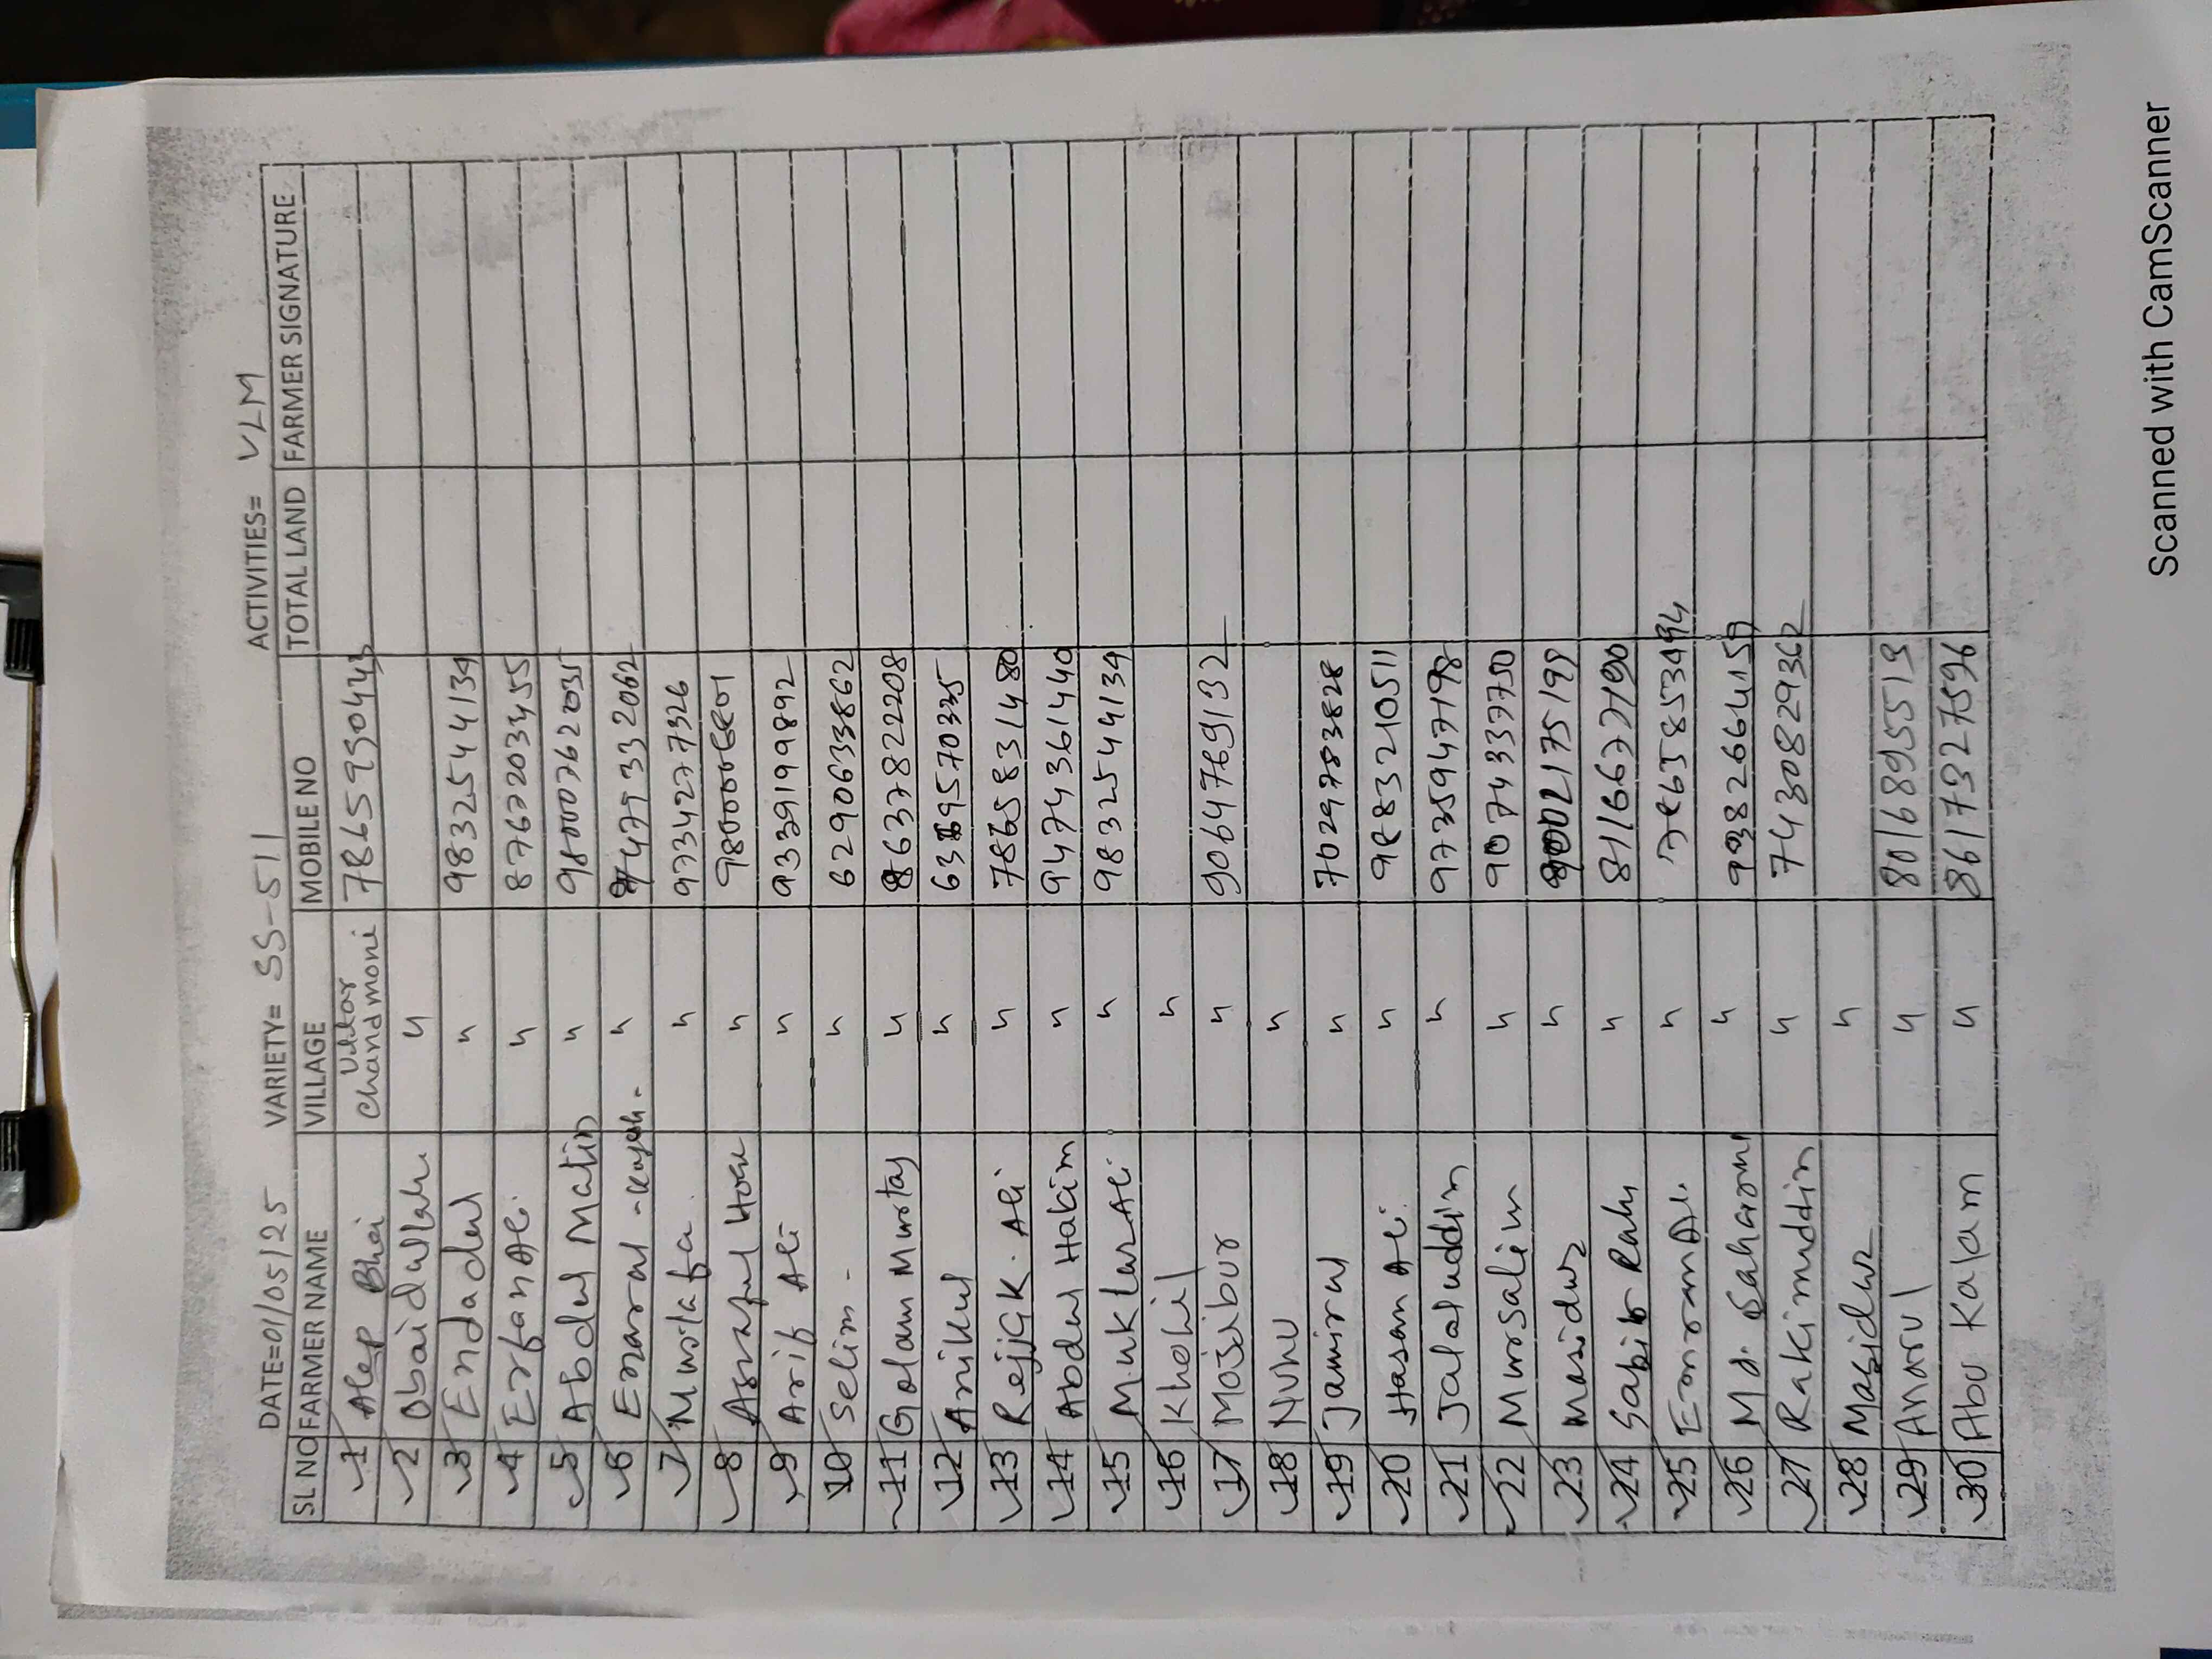 DATE=01/05/25 VARIETY= SS-511 ACTIVITIES= VLM
SL NO FARMER NAME VILLAGE MOBILE NO TOTAL LAND FARMER SIGNATURE
1 Alep Bhai Uttar Chandmoni 7865990443
2 Obaidullah "
3 Endadul " 9832544134
4 Erfan Ali " 8767203455
5 Abdul Matin " 9800762035
6 Enarul "
7 Murtafa " 9734277326
8 Asraful Hoque "
9 Arif Ali " 9339199892
10 Selim - " 6290633862
11 Golam Murtaj " 8637822208
12 Anikul "
13 Rejjak Ali " 7865831480
14 Abdul Hakim " 9474361440
15 Muktar Ali " 9832544134
16 Khalil "
17 Mojibur " 9064769132
18 Nuhu "
19 Jamirul " 7029783828
20 Hasan Ali " 9883210511
21 Jalaluddin " 9735947198
22 Mursalim " 9074337750
23 Masidur " 9002175199
24 Sabir " 8116677190
25 Emran Ali "
26 Md. "
27 Rakimuddin " 7430829362
28 Masidur "
29 Anarul " 8016895519
30 Abu Kalam " 8617327596
Scanned with CamScanner